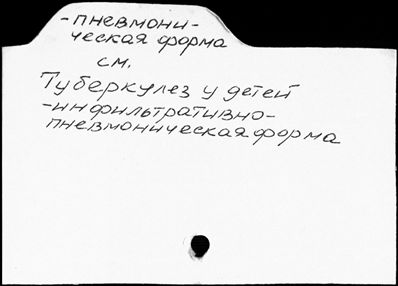 -пневмони-
ческая форма
см.
Туберкулез у детей
-инфильтративно-
пневмоническая форма